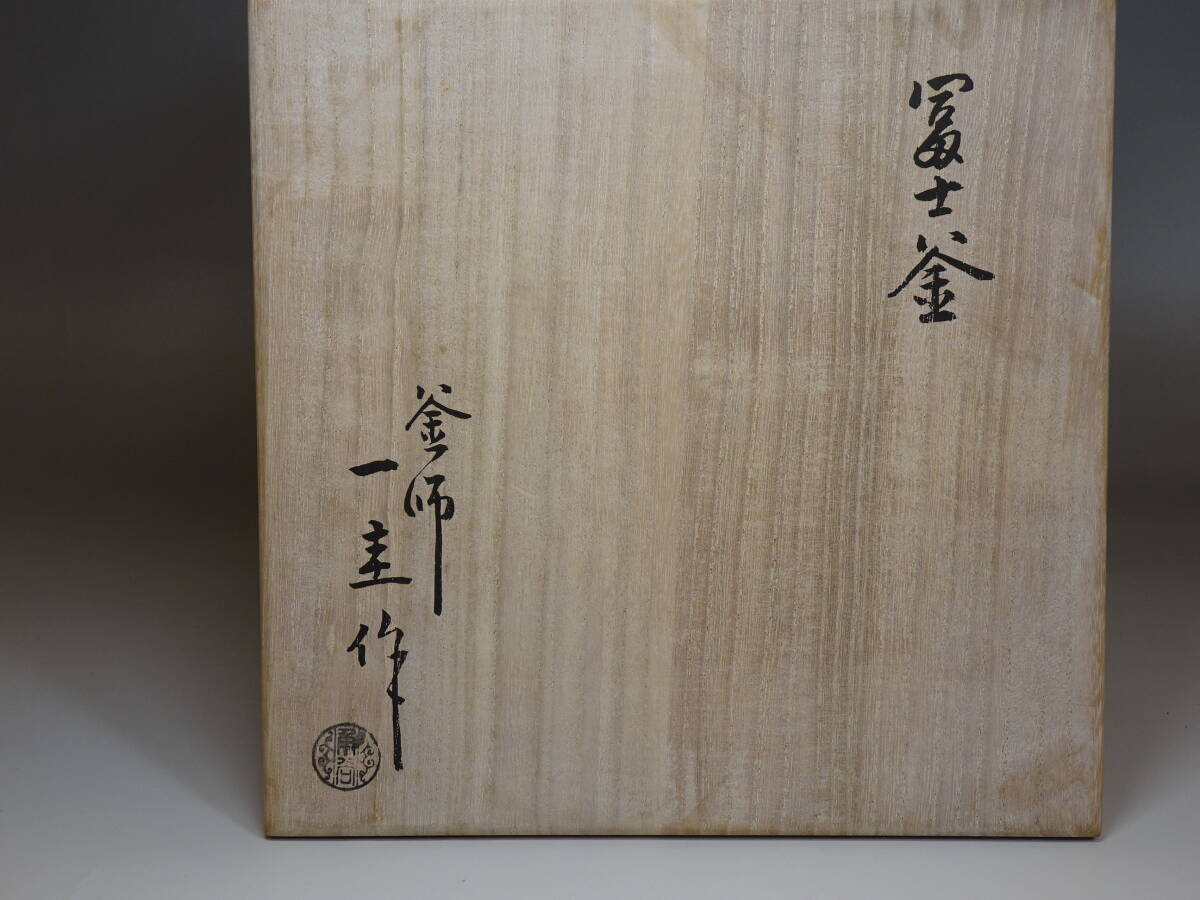 冨士釜
釜師
一圭作